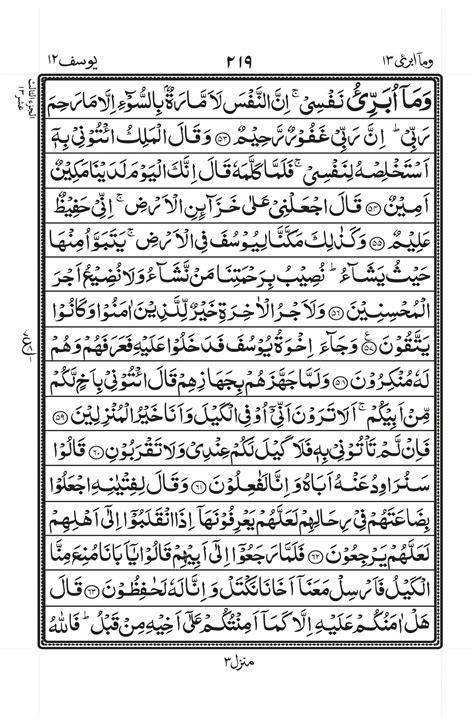 وما ابرئ ١٣
٢١٩
يوسف ١٢
الجزء الثالث عشر ١٣
وَمَآ اُبَرِّئُ نَفْسِىْ ۚ اِنَّ النَّفْسَ لَاَمَّارَةٌۢ بِالسُّوْٓءِ اِلَّا مَا رَحِمَ
رَبِّىْ ؕ اِنَّ رَبِّىْ غَفُوْرٌ رَّحِيْمٌ ۝٥٣ وَقَالَ الْمَلِكُ ائْتُوْنِىْ بِهٖۤ
اَسْتَخْلِصْهُ لِنَفْسِىْ ۚ فَلَمَّا كَلَّمَهٗ قَالَ اِنَّكَ الْيَوْمَ لَدَيْنَا مَكِيْنٌ
اَمِيْنٌ ۝٥٤ قَالَ اجْعَلْنِىْ عَلٰى خَزَآئِنِ الْاَرْضِ ۚ اِنِّىْ حَفِيْظٌ
عَلِيْمٌ ۝٥٥ وَكَذٰلِكَ مَكَّنَّا لِيُوْسُفَ فِى الْاَرْضِ ۚ يَتَبَوَّاُ مِنْهَا
حَيْثُ يَشَآءُ ؕ نُصِيْبُ بِرَحْمَتِنَا مَنْ نَّشَآءُ وَلَا نُضِيْعُ اَجْرَ
الْمُحْسِنِيْنَ ۝٥٦ وَلَاَجْرُ الْاٰخِرَةِ خَيْرٌ لِّلَّذِيْنَ اٰمَنُوْا وَكَانُوْا
يَتَّقُوْنَ ۝٥٧ وَجَآءَ اِخْوَةُ يُوْسُفَ فَدَخَلُوْا عَلَيْهِ فَعَرَفَهُمْ وَهُمْ
لَهٗ مُنْكِرُوْنَ ۝٥٨ وَلَمَّا جَهَّزَهُمْ بِجَهَازِهِمْ قَالَ ائْتُوْنِىْ بِاَخٍ لَّكُمْ
مِّنْ اَبِيْكُمْ ۚ اَلَا تَرَوْنَ اَنِّىْۤ اُوْفِى الْكَيْلَ وَاَنَا خَيْرُ الْمُنْزِلِيْنَ ۝٥٩
فَاِنْ لَّمْ تَاْتُوْنِىْ بِهٖ فَلَا كَيْلَ لَكُمْ عِنْدِىْ وَلَا تَقْرَبُوْنِ ۝٦٠ قَالُوْا
سَنُرَاوِدُ عَنْهُ اَبَاهُ وَاِنَّا لَفٰعِلُوْنَ ۝٦١ وَقَالَ لِفِتْيٰنِهِ اجْعَلُوْا
بِضَاعَتَهُمْ فِىْ رِحَالِهِمْ لَعَلَّهُمْ يَعْرِفُوْنَهَاۤ اِذَا انْقَلَبُوْۤا اِلٰٓى اَهْلِهِمْ
لَعَلَّهُمْ يَرْجِعُوْنَ ۝٦٢ فَلَمَّا رَجَعُوْۤا اِلٰٓى اَبِيْهِمْ قَالُوْا يٰۤاَبَانَا مُنِعَ مِنَّا
الْكَيْلُ فَاَرْسِلْ مَعَنَاۤ اَخَانَا نَكْتَلْ وَاِنَّا لَهٗ لَحٰفِظُوْنَ ۝٦٣ قَالَ
هَلْ اٰمَنُكُمْ عَلَيْهِ اِلَّا كَمَاۤ اَمِنْتُكُمْ عَلٰٓى اَخِيْهِ مِنْ قَبْلُ ؕ فَاللّٰهُ
منزل ٣